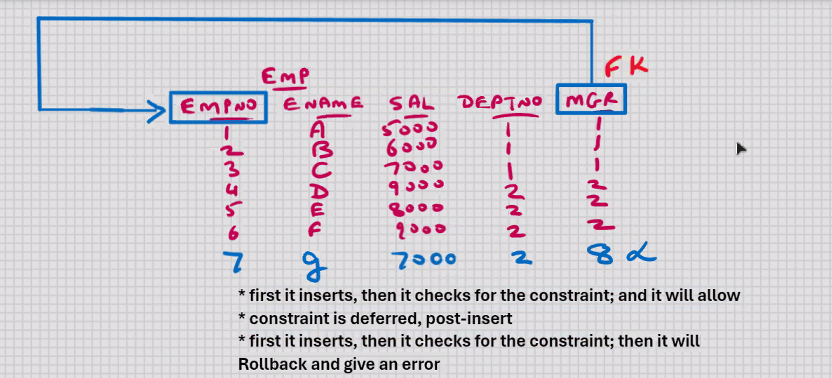 FK
EMP
EMPNO ENAME SAL DEPTNO MGR
1 A 5000 1 1
2 B 6000 1 1
3 C 7000 1 1
4 D 9000 2 2
5 E 8000 2 2
6 F 9000 2 2
7 g 7000 2 8
* first it inserts, then it checks for the constraint; and it will allow
* constraint is deferred, post-insert
* first it inserts, then it checks for the constraint; then it will
Rollback and give an error